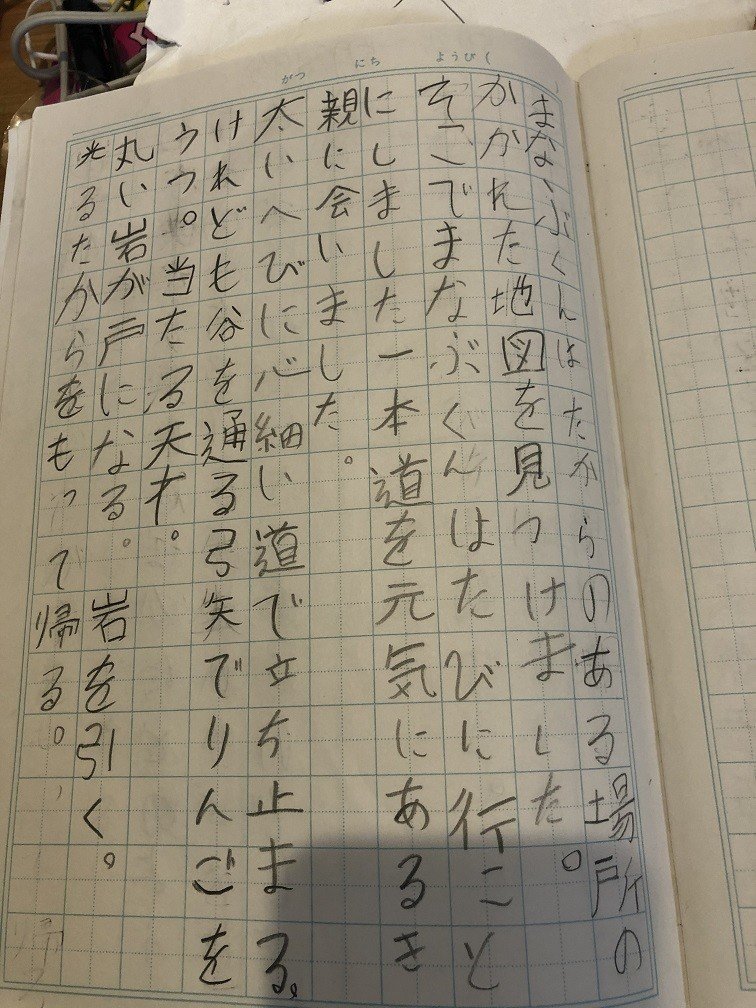 がつ にち ようび（
まなぶくんはたからのある場所の
かかれた地図を見つけました。
そこでまなぶくんはたびに行こと
にしました一本道を元気にあるき
親に会いました。
太いへびに心細い道で立ち止まる。
けれども谷を通る弓矢でりんごを
うつ。当たる天才。
丸い岩が戸になる。岩を引く。
光るたからをもって帰る。